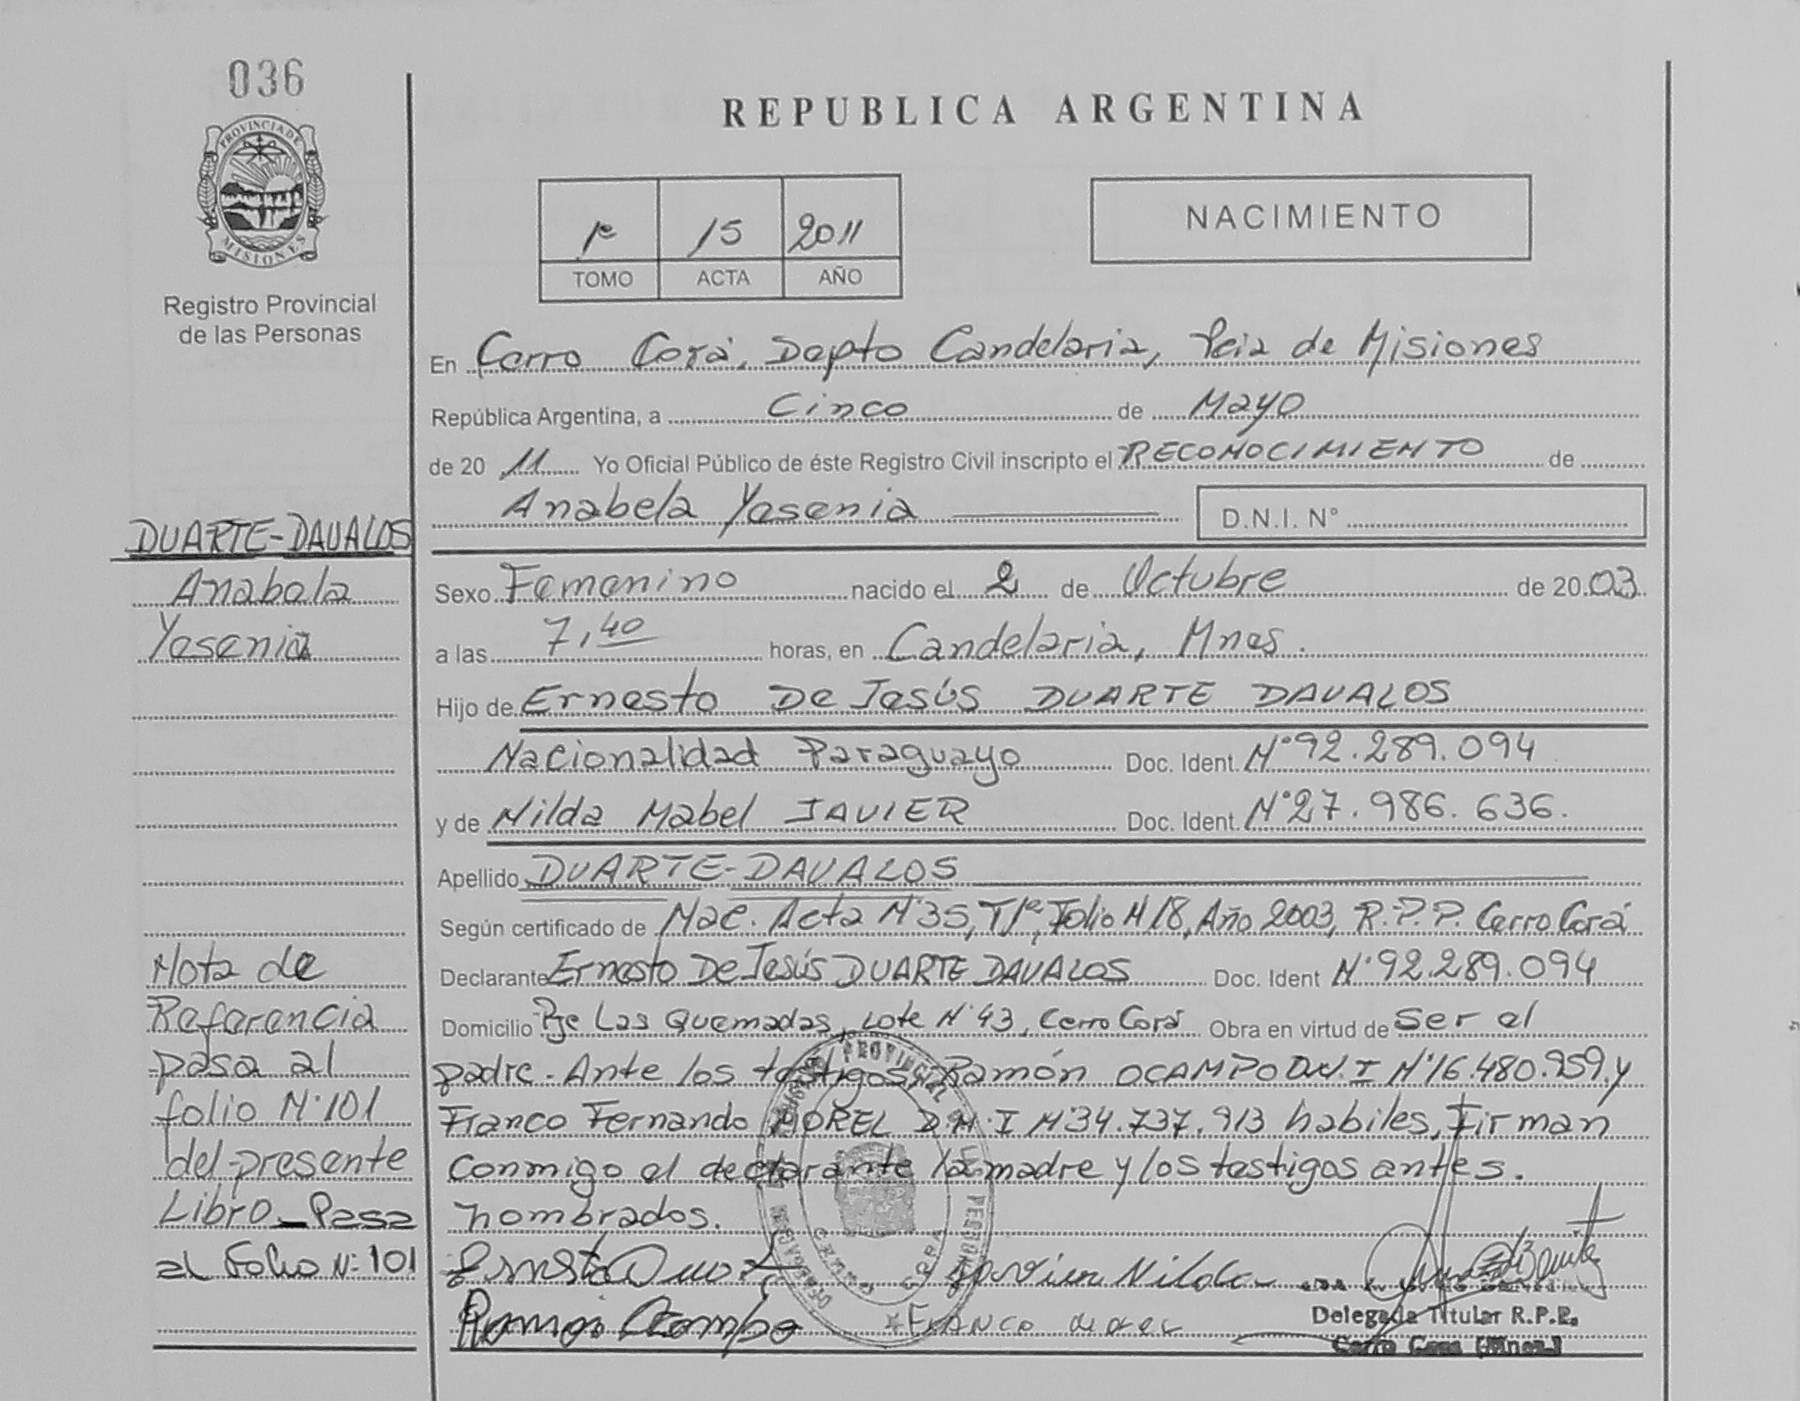 036
PROVINCIA DE
MISIONES
Registro Provincial
de las Personas
REPUBLICA ARGENTINA
1º 15 2011
TOMO ACTA AÑO
NACIMIENTO
En Cerro Corá, Depto Candelaria, Pcia de Misiones
República Argentina, a Cinco de Mayo
de 20 11 Yo Oficial Público de éste Registro Civil inscripto el RECONOCIMIENTO de
Anabela Yesenia D.N.I. N°
Sexo Femenino nacido el 2 de Octubre de 20 03
a las 7,40 horas, en Candelaria, Mnes.
Hijo de Ernesto De Jesús DUARTE DAVALOS
Nacionalidad Paraguayo Doc. Ident. N°92.289.094
y de Nilda Mabel JAVIER Doc. Ident. N°27.986.636.
Apellido DUARTE-DAVALOS
Según certificado de Nac. Acta N°35, T/1º, Folio N°18, Año 2003, R.P.P. Cerro Corá
Declarante Ernesto De Jesús DUARTE DAVALOS Doc. Ident N°92.289.094
Domicilio Pje Las Quemadas, Lote N°43, Cerro Corá Obra en virtud de Ser el
padre. Ante los testigos, Ramón OCAMPO D.N.I N°16.480.959 y
Franco Fernando MOREL D.N.I N°34.737.913 habiles, Firman
Conmigo el declarante la madre y los testigos antes.
nombrados.
Ernesto Duarte Javier Nilda
Ramon Ocampo Franco Morel
Delegada Titular R.P.P.
Cerro Cora (Mnes.)
DUARTE-DAVALOS
Anabela
Yesenia
Nota de
Referencia
pasa al
folio N°101
del presente
Libro_ Pasa
al Folio N: 101
CERRO CORA